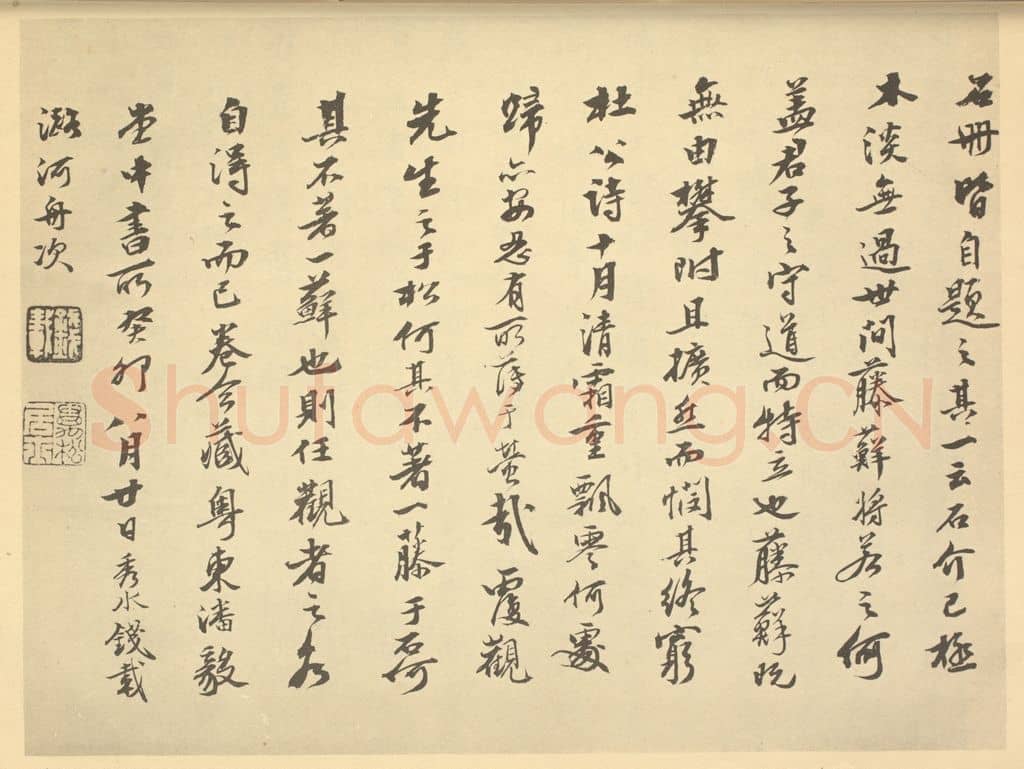 石册皆自題之其一云石介已極
木淡無過世间藤蘚将若之何
蓋君子之守道而特立也藤蘚既
無由攀附且擴然而憫其終窮
杜公詩十月清霜重飄零何處
歸亦安忍有所薄于蛰哉覆觀
先生之于松何其不著一藤于石何
其不著一蘚也則任觀者之各
自得之而已卷今藏粤東潘毅
堂中書所癸卯八月廿日秀水錢載
潞河舟次
Shufawang.CN